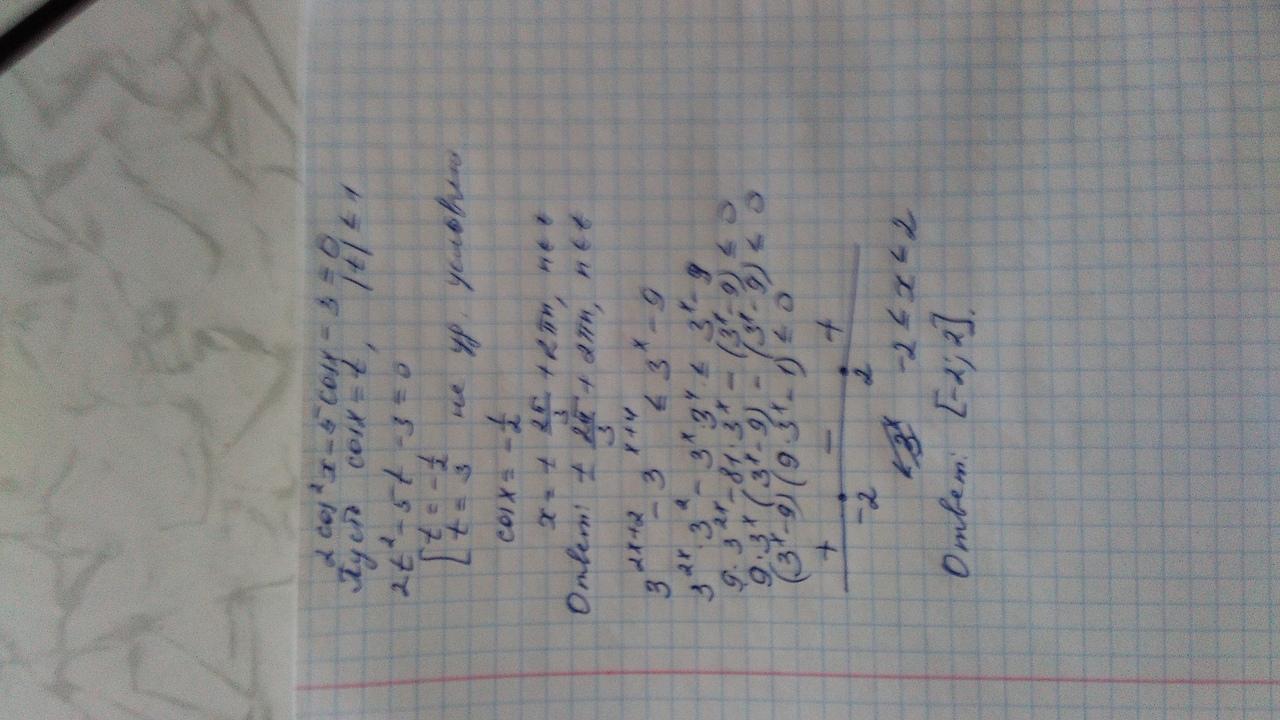 2cos²x - 5cosx - 3 = 0
Пусть cosx = t, |t| ≤ 1
2t² - 5t - 3 = 0
[ t = -1/2
[ t = 3 не ур. условию
cosx = -1/2
x = ± 2π/3 + 2πn, n ∈ Z
Ответ: ± 2π/3 + 2πn, n ∈ Z
3^(2x+2) - 3^(x+4) ≤ 3^x - 9
3^(2x) · 3² - 3^x · 3⁴ ≤ 3^x - 9
9 · 3^(2x) - 81 · 3^x - (3^x - 9) ≤ 0
9 · 3^x (3^x - 9) - (3^x - 9) ≤ 0
(3^x - 9)(9 · 3^x - 1) ≤ 0
+ - +
-2 2
-2 ≤ x ≤ 2
Ответ: [-2; 2].